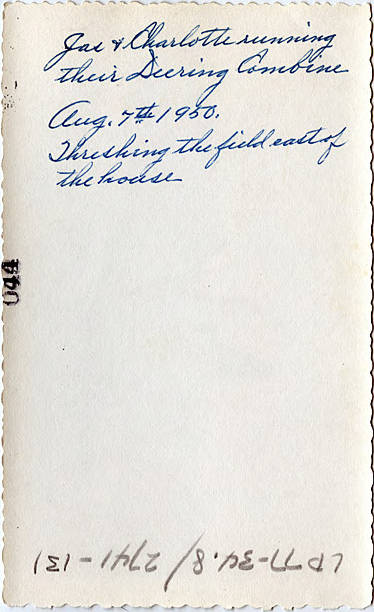 Jas & Charlotte running
their Deering Combine
Aug. 7th 1950.
Threshing the field east of
the house
044
LP77-34.8/ 2741-131